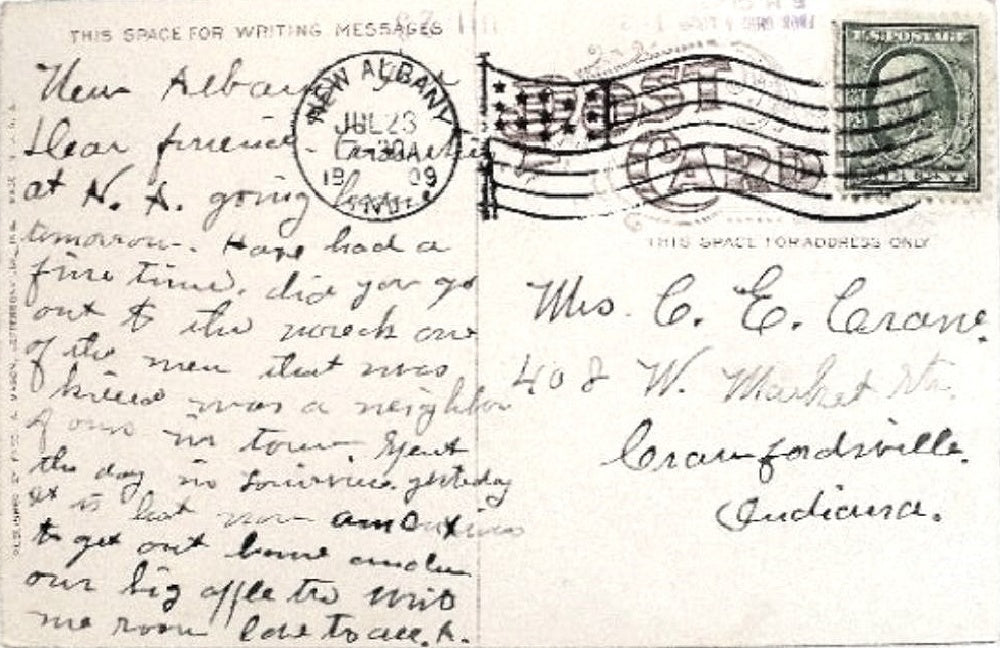 THIS SPACE FOR WRITING MESSAGES
New Albany
Dear friend-
at N. A. going home
tomorrow. Have had a
fine time. did you go
out to the wreck one
of the men that was
killed was a neighbor
of ours in town. Spent
the day in Louisville yesteday
it is hot now am anxious
to get out home under
our big apple tre Writ
me soon love to all. A.
NEW ALBANY
JUL 23
30A
1909
IND
POST CARD
U.S. POSTAGE
THIS SPACE FOR ADDRESS ONLY
Mrs. C. E. Crane.
408 W. Market St.
Crawfordsville.
Indiana.